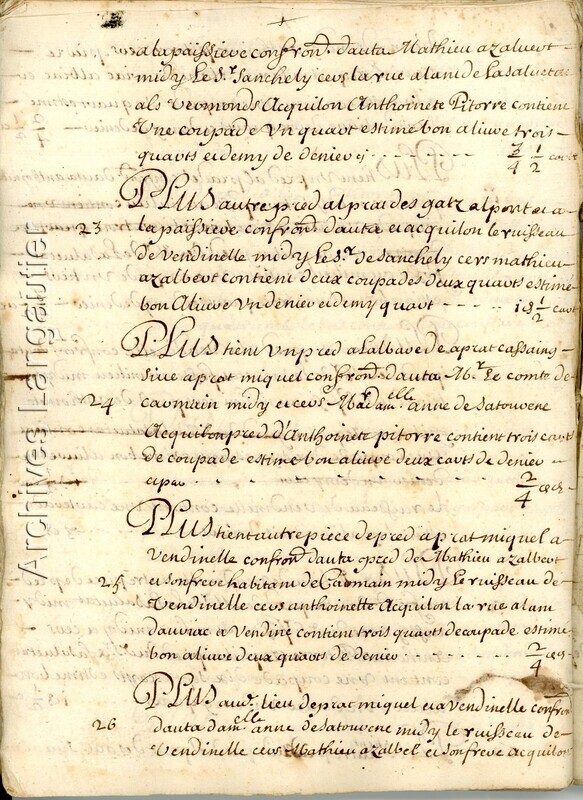 a la paissieve confron.t dauta Mathieu azalvert
midy Le S.r Sanchely cers la rue alant de La Salvetat
als Vermonds Acquilon Anthoinete Pitorre contient
Une coupade Un quart estime bon a livre trois
quarts et demy de denier cy - - - - - - 3/4 1/2
PLUS autre pred al prat des gatz al pont et a
23 la paissieve confron.t dauta et acquilon le ruisseau
de Vendinelle midy Le S.r de Sanchely cers mathieu
azalbert contient deux coupades deux quarts estimé
bon A livre Un denier et demy quart - - - - - 1 d 1/2 cart
PLUS tient Un pred a Lalbare de a prat cassaing
sive a prat miquel confron.t dauta M.r Le comte de
24 carmain midy et cers Mad.elle anne de Satouvene
Acquilon pred d'Anthoinete pitorre contient trois carts
de coupade estime bon a livre deux carts de denier
2/4
PLUS tient autre piece de pred a prat miquel a
Vendinelle confron.t dauta pred de Mathieu azalbert
25 et son freve habitant de Caomain midy Le ruisseau de
Vendinelle cers anthoinette Acquilon la rue alant
dauriac a Vendine contient trois quarts de coupade estime
bon a livre deux quarts de denier - - - - - 2/4
PLUS aud. lieu de prat miquel et a Vendinelle confron
26 dauta dam.elle anne de Satouvene midy le ruisseau de
Vendinelle cers Mathieu azalbel et son freve acquilon
Archives Langautier